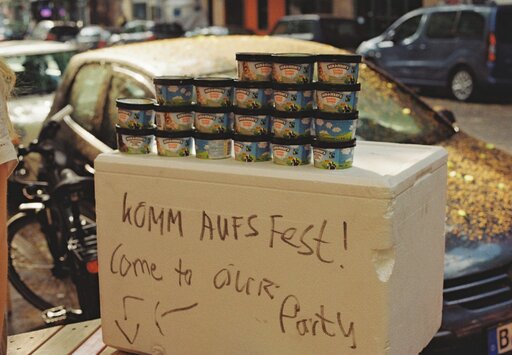 KOMM AUFS FEST!
Come to OUR
Party
B